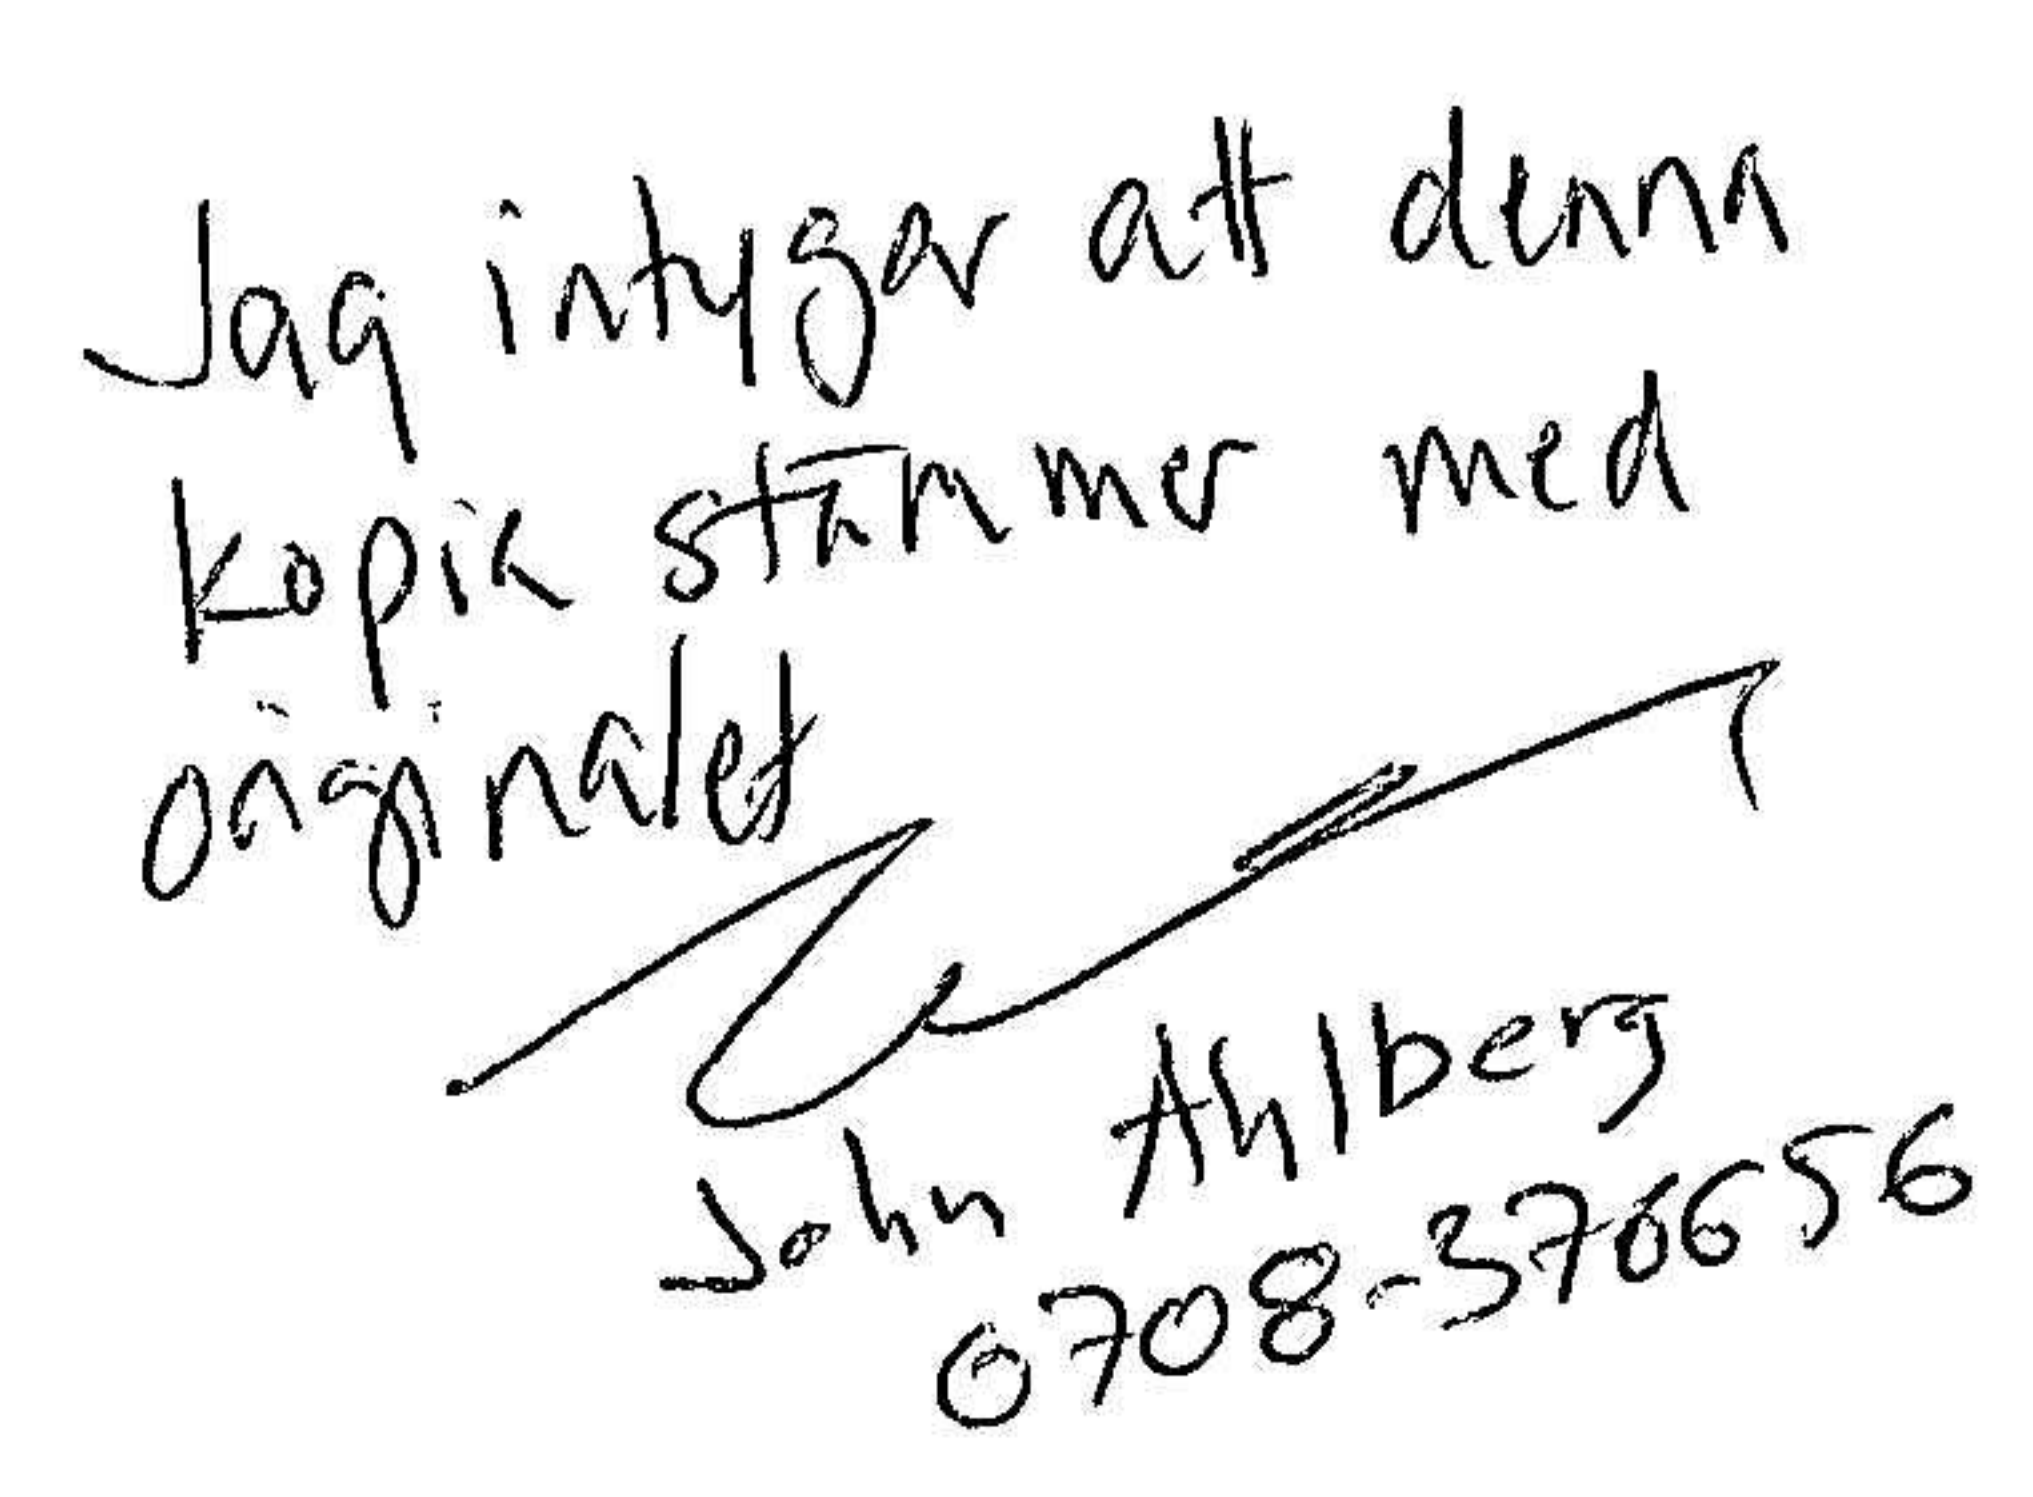 Jag intygar att denna
kopia stämmer med
originalet
John Ahlberg
0708-376656